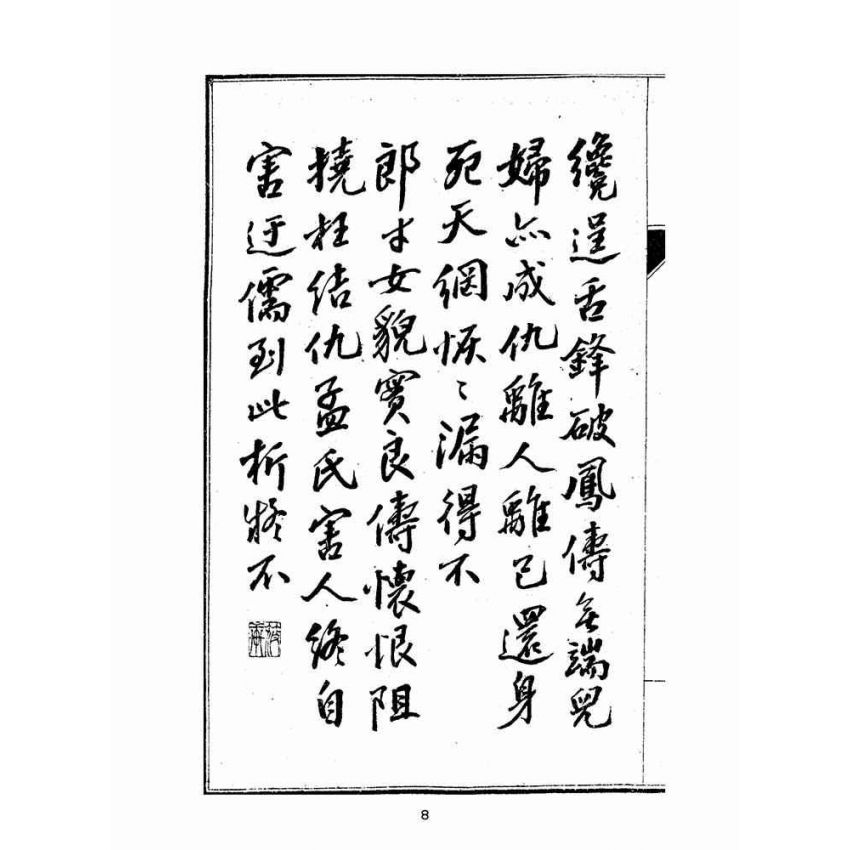 纔逞舌鋒破鳳儔無端兒
婦亦成仇離人離己還身
死天網恢〻漏得不
郎才女貌實良儔懷恨阻
撓枉結仇孟氏害人終自
害迂儒到此析疑不
8